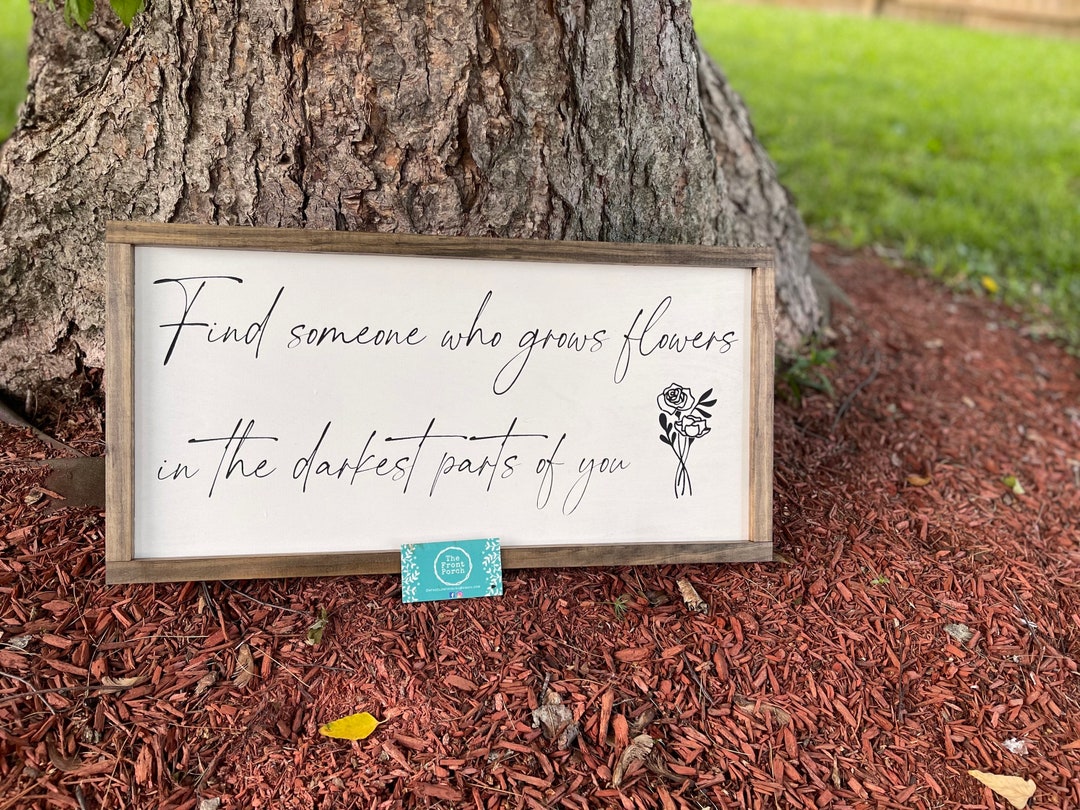 Find someone who grows flowers
in the darkest parts of you
The
Front
Porch